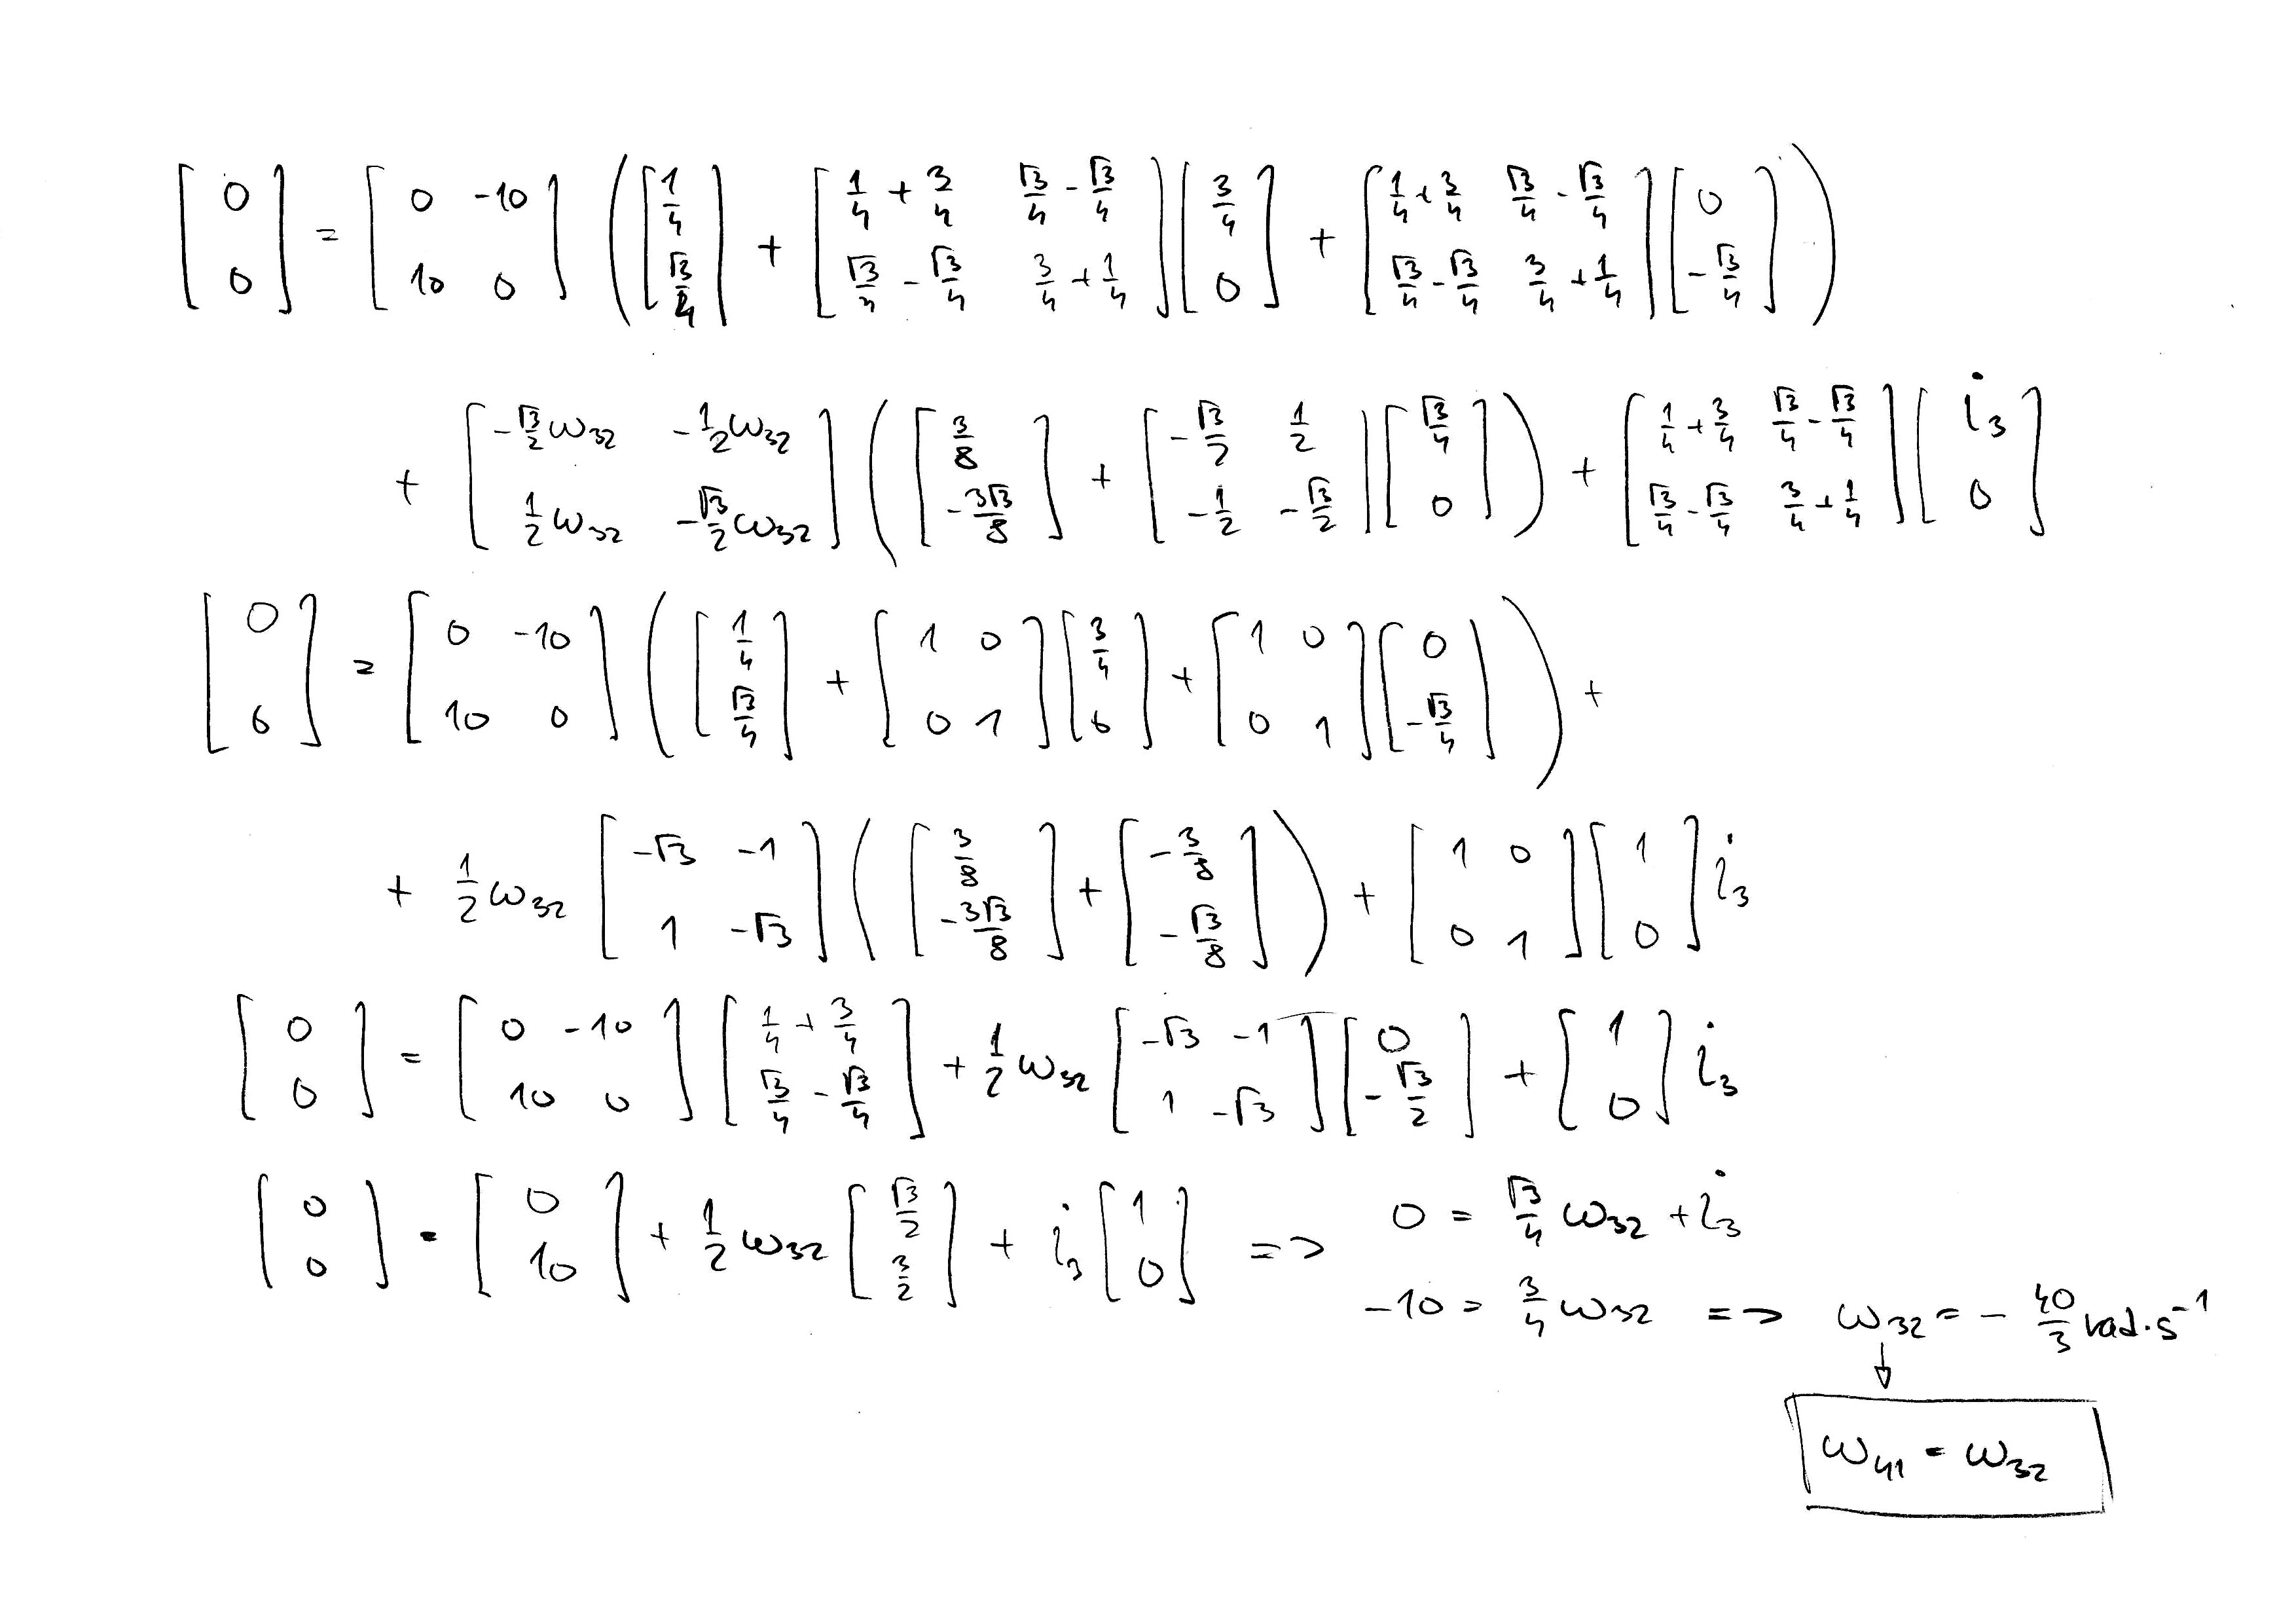 [0; 0] = [0 -10; 10 0] ([1/4; √3/4] + [1/4+3/4 √3/4-√3/4; √3/4-√3/4 3/4+1/4][3/4; 0] + [1/4+3/4 √3/4-√3/4; √3/4-√3/4 3/4+1/4][0; -√3/4])
+ [-√3/2 ω32 -1/2 ω32; 1/2 ω32 -√3/2 ω32] ([3/8; -3√3/8] + [-√3/2 1/2; -1/2 -√3/2][√3/4; 0]) + [1/4+3/4 √3/4-√3/4; √3/4-√3/4 3/4+1/4][i3; 0]
[0; 0] = [0 -10; 10 0] ([1/4; √3/4] + [1 0; 0 1][3/4; 0] + [1 0; 0 1][0; -√3/4]) +
+ 1/2 ω32 [-√3 -1; 1 -√3] ([3/8; -3√3/8] + [-3/8; -√3/8]) + [1 0; 0 1][1; 0] i3
[0; 0] = [0 -10; 10 0][1/4+3/4; √3/4-√3/4] + 1/2 ω32 [-√3 -1; 1 -√3][0; -√3/2] + [1; 0] i3
[0; 0] = [0; 10] + 1/2 ω32 [√3/2; 3/2] + i3 [1; 0] => 0 = √3/4 ω32 + i3
-10 = 3/4 ω32 => ω32 = - 40/3 rad·s⁻¹
↓
ω41 = ω32